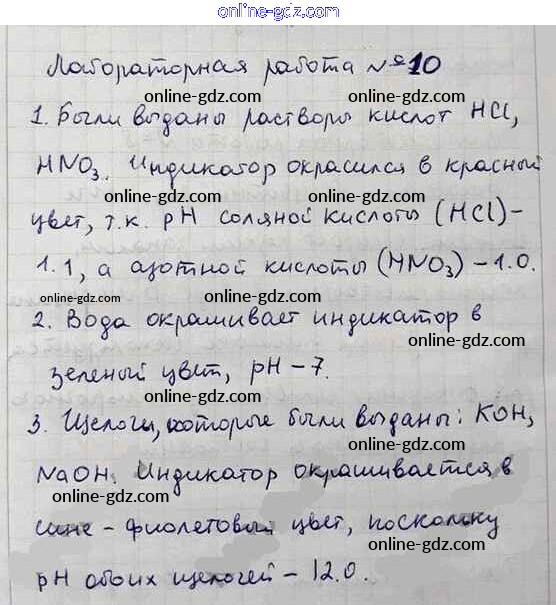 online-gdz.com
Лабораторная работа № 10
online-gdz.com
1. Были выданы растворы кислот HCl,
online-gdz.com
HNO3. Индикатор окрасился в красный
online-gdz.com
цвет, т.к. pH соляной кислоты (HCl) -
online-gdz.com
1.1, а азотной кислоты (HNO3) - 1.0.
online-gdz.com
2. Вода окрашивает индикатор в
online-gdz.com
зеленый цвет, pH - 7.
online-gdz.com
3. Щелочи, которые были выданы: KOH,
online-gdz.com
NaOH. Индикатор окрашивается в
online-gdz.com
сине - фиолетовый цвет, поскольку
online-gdz.com
pH обоих щелочей - 12.0.
online-gdz.com